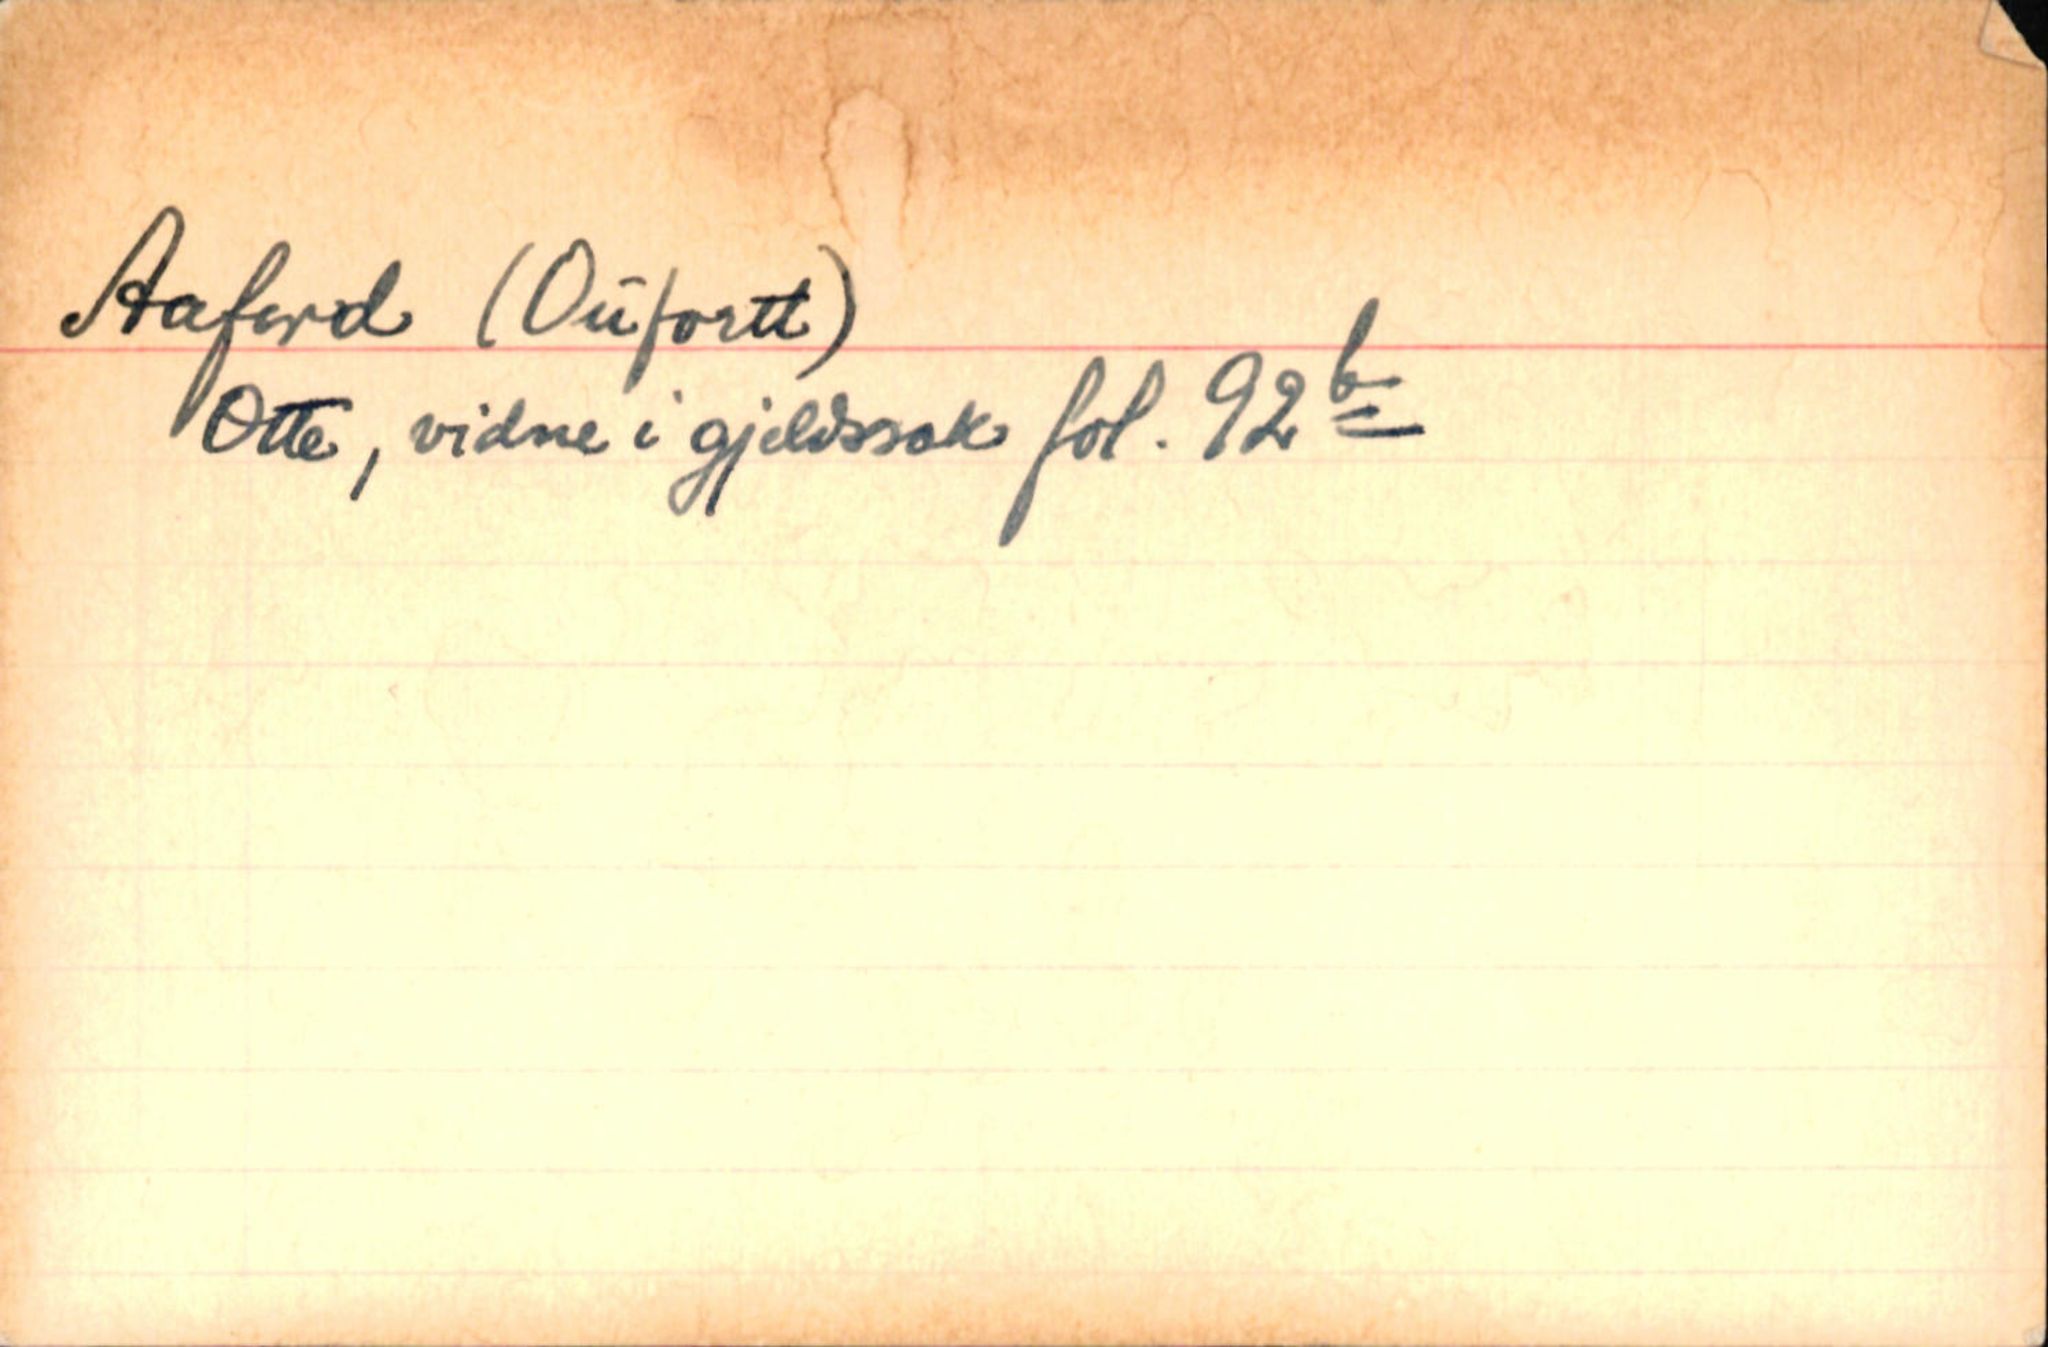 Aaferd (Oüfortt)
Otte, vidne i gjeldssak fol. 92 b